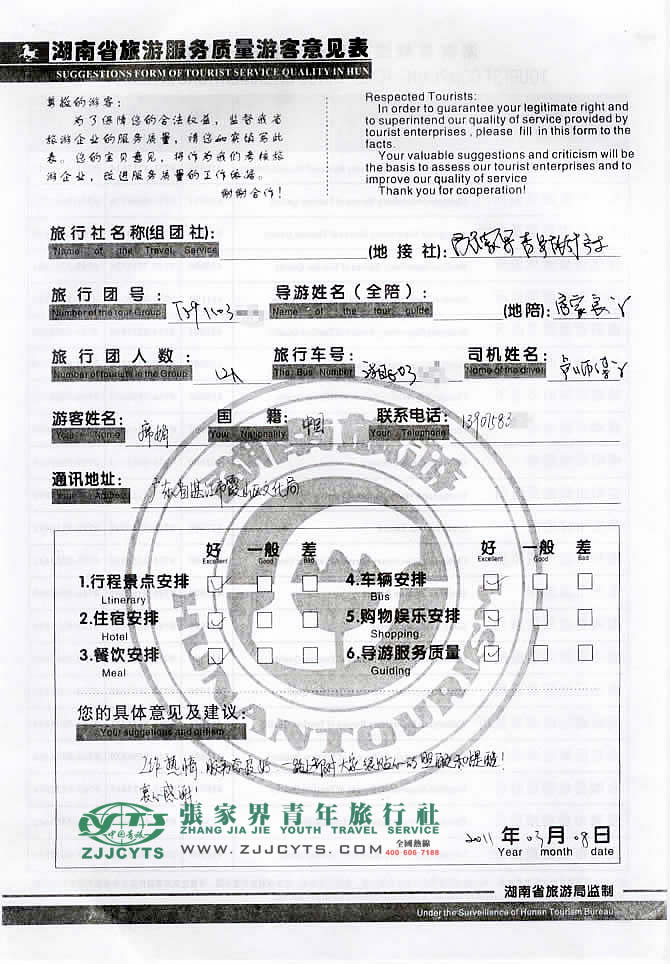 湖南省旅游服务质量游客意见表
SUGGESTIONS FORM OF TOURIST SERVICE QUALITY IN HUN
尊敬的游客:
为了保障您的合法权益,监督我省
旅游企业的服务质量,请您如实填写此
表。您的宝贝意见,将作为我们考核旅
游企业,改进服务质量的工作依据。
谢谢合作!
Respected Tourists:
In order to guarantee your legitimate right and
to superintend our quality of service provided by
tourist enterprises , please fill in this form to the
facts.
Your valuable suggestions and criticism will be
the basis to assess our tourist enterprises and to
improve our quality of service
Thank you for cooperation!
旅行社名称(组团社): (地 接 社): 张家界青年旅行社
Name of the Travel Service
旅 行 团 号: 导游姓名(全陪): (地陪):
Number of the tour Group Name of the tour guide
旅 行 团 人 数: 旅行车号: 司机姓名:
Number of tourists in the Group The Bus Number Name of the driver
游客姓名: 国 籍: 中国 联系电话: 13907583
Your Name Your Nationality Your Telephone
通讯地址: 广东省湛江市霞山区文化局
Your Address
好 一般 差 好 一般 差
Excellent Good Bad Excellent Good Bad
1.行程景点安排 4.车辆安排
Ltinerary Bus
2.住宿安排 5.购物娱乐安排
Hotel Shopping
3.餐饮安排 6.导游服务质量
Meal Guiding
HUNAN TOURISM
您的具体意见及建议:
Your suggetions and critism
工作热情,服务态度好,一路上都对大家细心的照顾和提醒!
衷心感谢!
ZJJCYTS
中国青旅
張家界青年旅行社
ZHANG JIA JIE YOUTH TRAVEL SERVICE
WWW.ZJJCYTS.COM 全國熱線 400 606 7188
2011 年 03 月 08 日
Year month date
湖南省旅游局监制
Under the Surveillance of Hunan Tourism Bureau